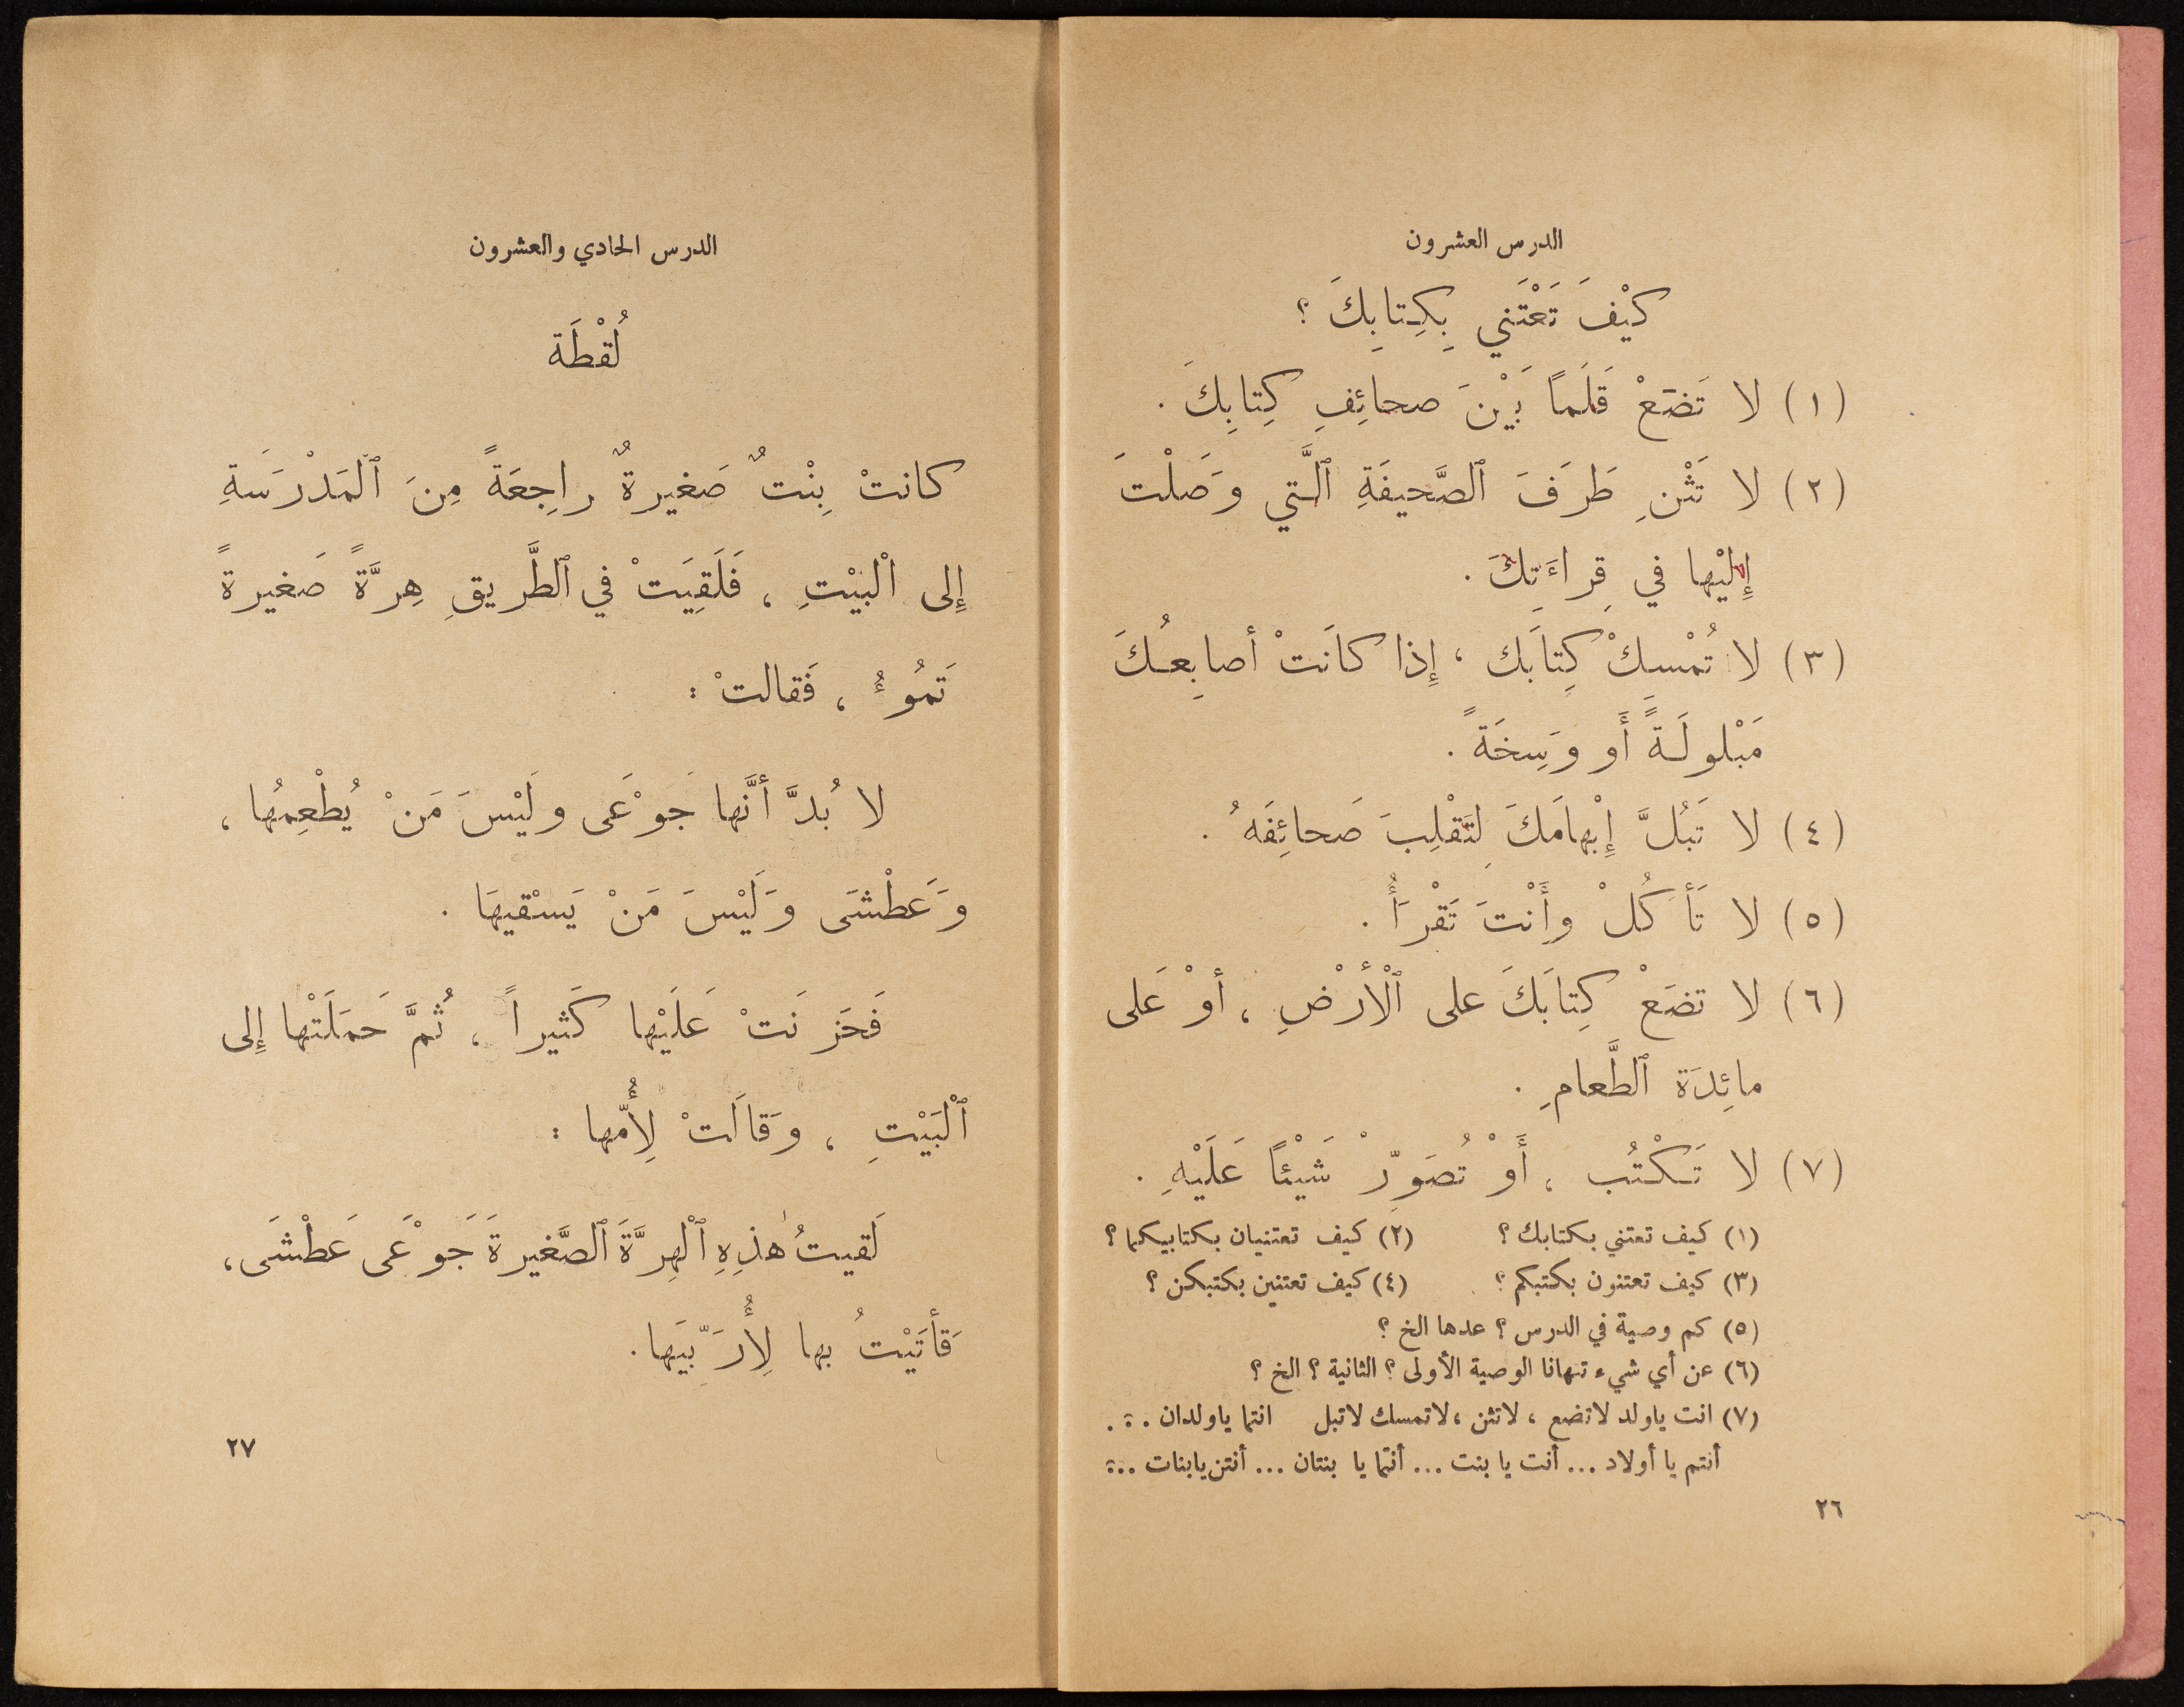 الدرس العشرون
كَيْفَ تَعْتَني بِكِتابِكَ ؟
(١) لا تَضَعْ قَلَماً بَيْنَ صحائِفِ كِتابِكَ .
(٢) لا تَثْنِ طَرَفَ ٱلصَّحيفَةِ ٱلَّتي وَصَلْتَ
إِلَيْها في قِراءَتِكَ .
(٣) لا تُمْسِكْ كِتابَك ، إِذا كانَتْ أصابِعُكَ
مَبْلولَةً أَو وَسِخَةً .
(٤) لا تَبُلَّ إِبْهامَكَ لِتَقْلِبَ صَحائِفَهُ .
(٥) لا تَأكُلْ وأَنْتَ تَقْرَأُ .
(٦) لا تضَعْ كِتابَكَ على ٱلْأرْضِ ، أوْ عَلى
مائِدَة ٱلطَّعامِ .
(٧) لا تَكْتُب ، أَوْ تُصَوِّرْ شَيْئاً عَلَيْهِ .
(١) كيف تعتني بكتابك ؟ (٢) كيف تعتنيان بكتابيكما ؟
(٣) كيف تعتنون بكتبكم ؟ (٤) كيف تعتنين بكتبكن ؟
(٥) كم وصية في الدرس ؟ عدها الخ ؟
(٦) عن أي شيء تنهانا الوصية الأولى ؟ الثانية ؟ الخ ؟
(٧) انت ياولد لاتضع ، لاتثن ، لاتمسك لاتبل انتما ياولدان ...
أنتم يا أولاد ... أنت يا بنت ... أنتما يا بنتان ... أنتن يابنات ...
٢٦
الدرس الحادي والعشرون
لُقْطَة
كانتْ بِنْتٌ صَغيرةٌ راجِعَةً مِنَ ٱلْمَدْرَسَةِ
إِلى الْبَيْتِ ، فَلَقِيَتْ في ٱلطَّريقِ هِرَّةً صَغيرةً
تَمُوءُ ، فَقالتْ :
لا بُدَّ أنَّها جَوْعَى ولَيْسَ مَنْ يُطْعِمُها ،
وَعَطْشَى وَلَيْسَ مَنْ يَسْقيهَا .
فَحَزِنَتْ عَلَيْها كَثيراً ، ثُمَّ حَمَلَتْها إِلى
ٱلْبَيْتِ ، وَقالَتْ لِأُمّها :
لَقيتُ هٰذِهِ ٱلْهِرَّةَ ٱلصَّغيرةَ جَوْعَى عَطْشَى ،
فَأَتَيْتُ بها لِأُرَبِّيَها .
٢٧